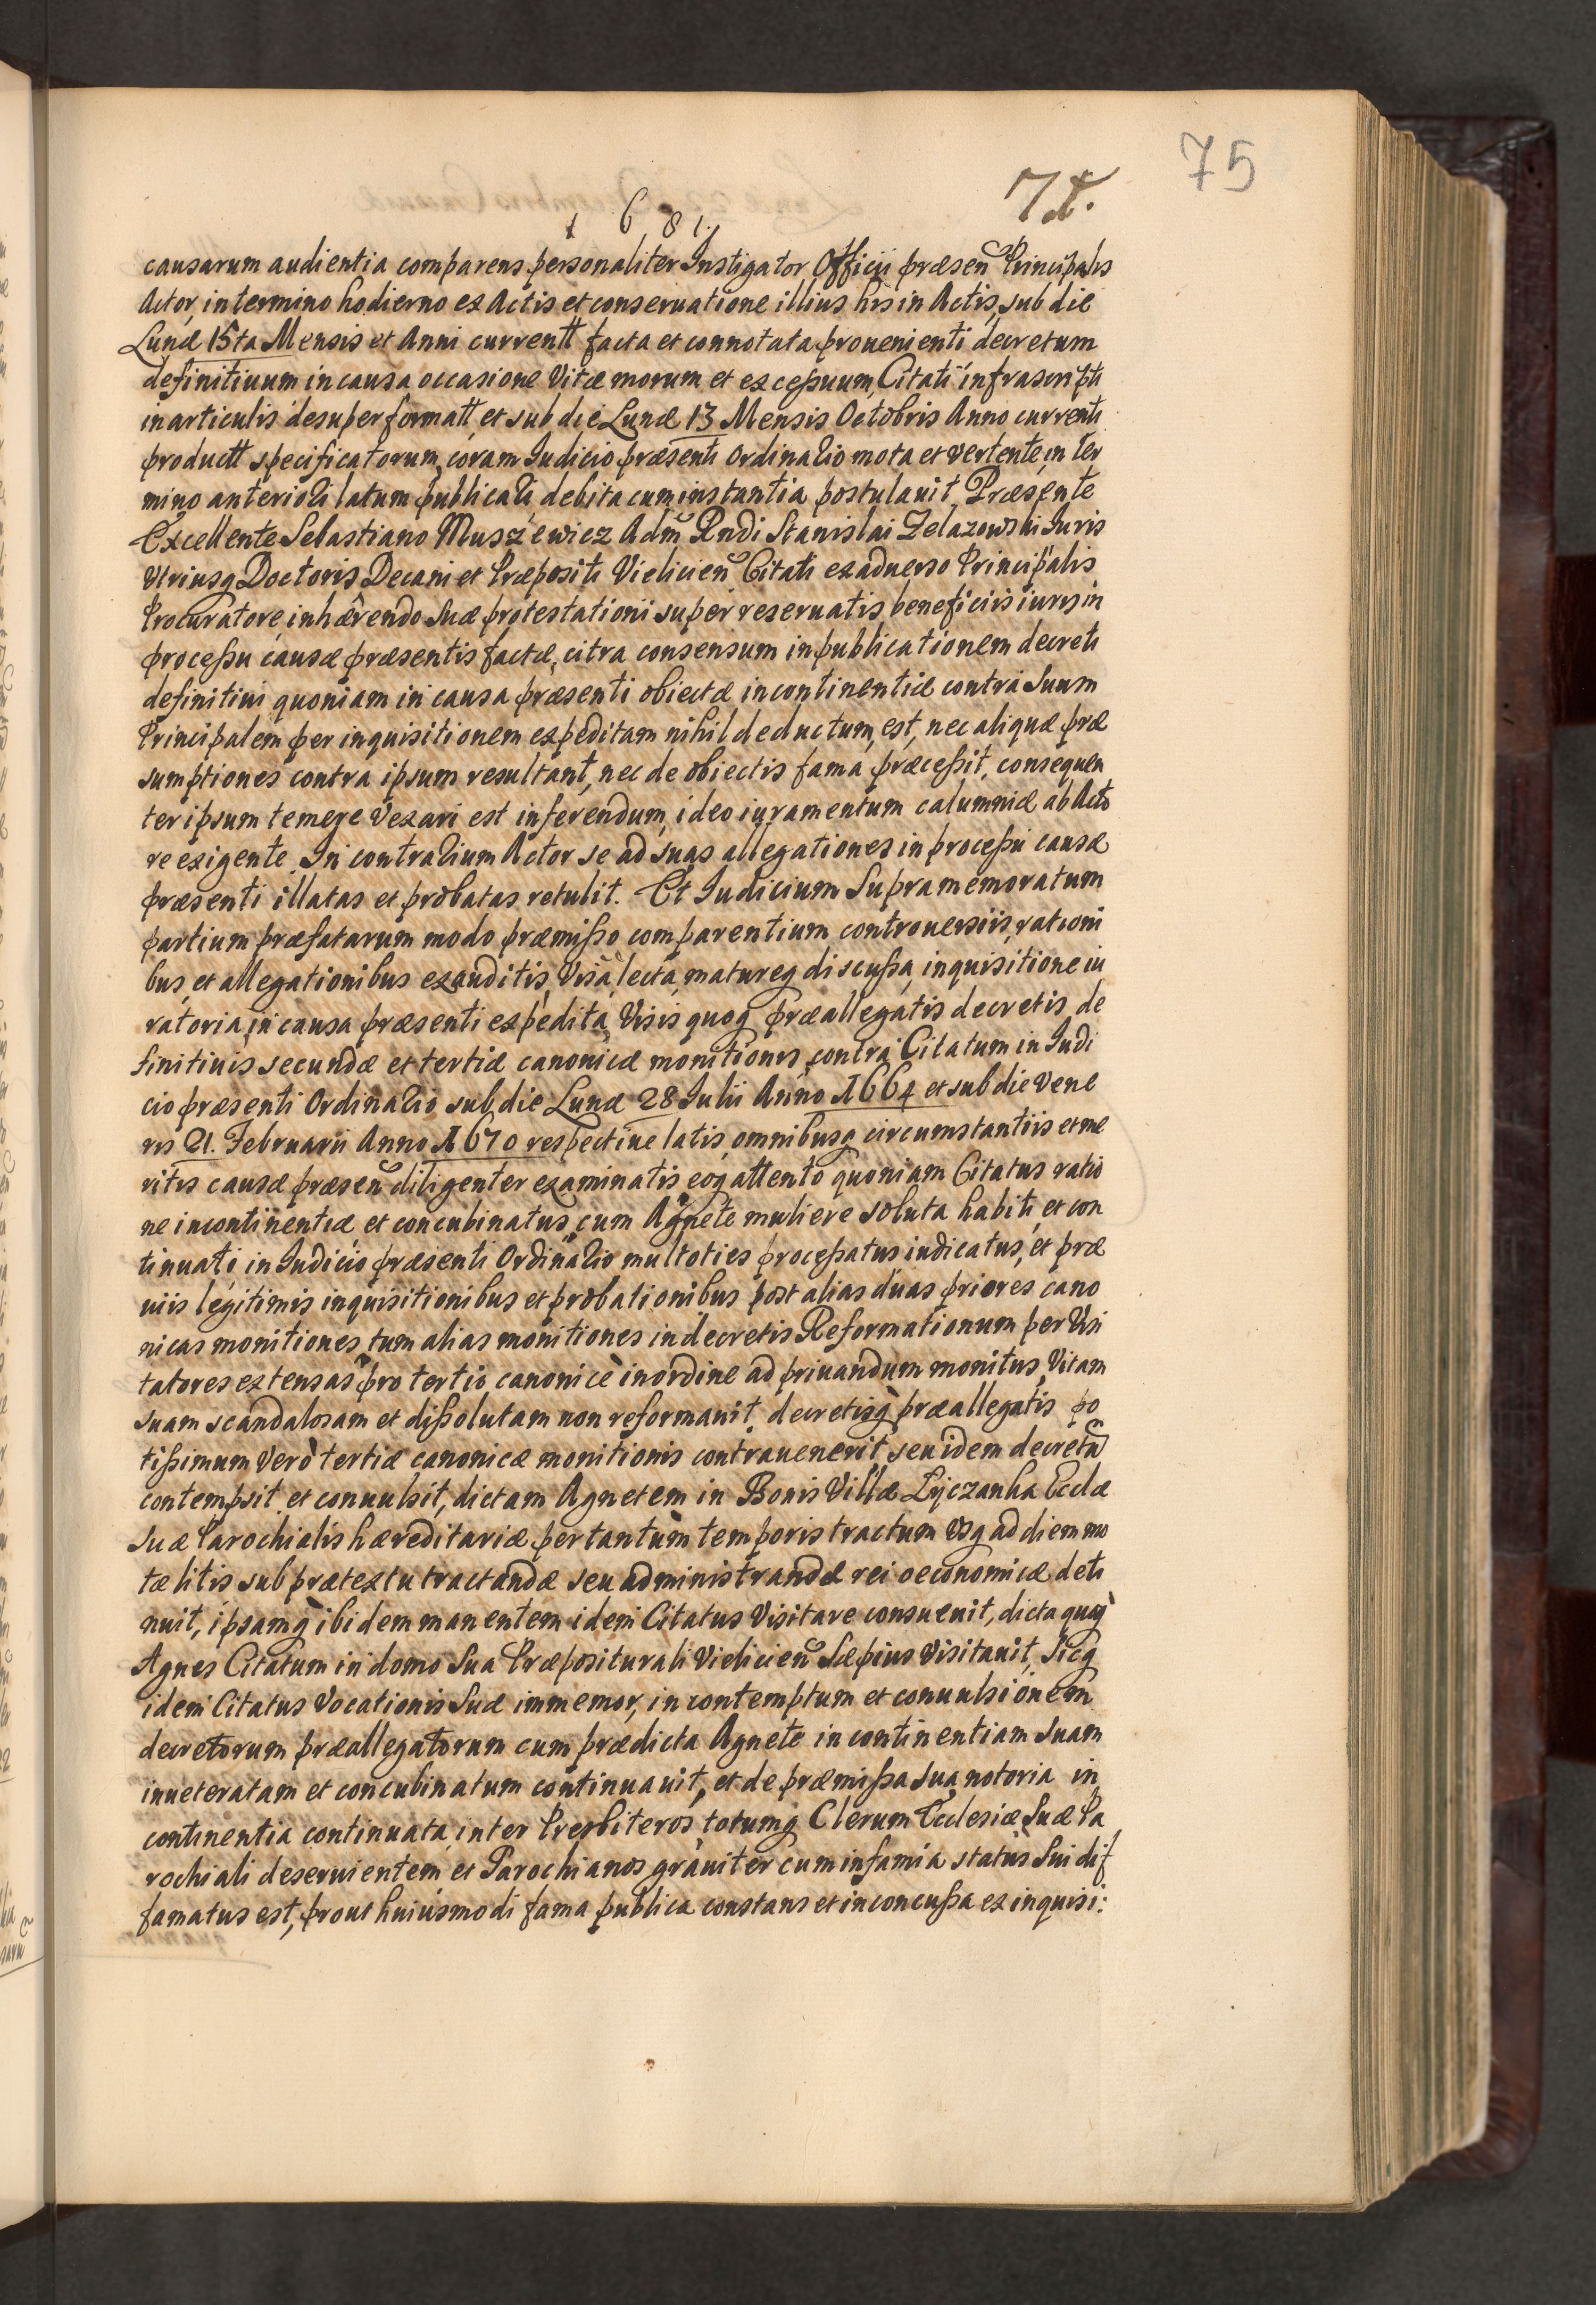 75
71.
1681
causarum audientia comparens personaliter Instigator Officii præsen Principalis
Actor, in termino hodierno ex Actis et conseruatione illius his in Actis, sub die
Lunæ 15ta Mensis et Anni currentt facta et connotata prouenienti decretum
definitiuum in causa occasione Vitæ morum et excessuum, Citati infrascripti
in articulis desuper formatt, et sub die Lunæ 13 Mensis Octobris Anno currenti
productt specificatorum, coram Iudicio præsenti Ordinario mota et vertente, in ter
mino anteriori latum publicari, debita cum instantia postulauit, Præsente
Excellente Sebastiano Muszewicz Adm Rndi Stanislai Zelazowski Iuris
Utriusq Doctoris Decani et Præpositi Vielicien Citati ex aduerso Principalis
Procuratore, inhærendo Suæ protestationi super reseruatis beneficiis iuris in
processu causæ præsentis factæ, citra consensum in publicationem decreti
definitiui quoniam in causa præsenti obiectæ incontinentiæ contra Suum
Principalem per inquisitionem expeditam nihil deductum est, nec aliquæ præ
sumptiones contra ipsum resultant, nec de obiectis fama præcessit, consequen
ter ipsum temere Vexari est inferendum, ideo iuramentum calumniæ ab Acto
re exigente. In contrarium Actor se ad suas allegationes in processu causæ
præsenti illatas et probatas retulit. Et Iudicium Supramemoratum
partium præfatarum modo præmisso comparentium controuersiis, rationi
bus, et allegationibus exauditis, Visa, lecta, matureq discussa inquisitione iu
ratoria, in causa præsenti expedita, Visis quoq præallegatis decretis de
finitiuis secundæ et tertiæ canonicæ monitionis contra Citatum in Iudi
cio præsenti Ordinario sub die Lunæ 28 Iulii Anno 1664 et sub die Vene
ris 21. Februarii Anno 1670 respectiue latis, omnibusq circumstantiis et me
ritis causæ præsen diligenter examinatis eoq attento quoniam Citatus ratio
ne incontinentiæ et concubinatus, cum Agnete muliere soluta habiti, et con
tinuati in Iudicio præsenti Ordinario multoties processatus iudicatus, et præ
uiis legitimis inquisitionibus et probationibus post alias duas priores cano
nicas monitiones tum alias monitiones in decretis Reformationum per Visi
tatores extensas pro tertio canonice in ordine ad priuandum monitus, Vitam
suam scandalosam et dissolutam non reformauit, decretisq præallegatis po
tissimum Vero tertiæ canonicæ monitionis contrauenerit, seu idem decretu
contempsit et conuulsit, dictam Agnetem in Bonis Villæ Lyczanka Ecclæ
Suæ Parochialis hæreditariæ per tantum temporis tractum Usq ad diem mo
tæ litis sub prætextu tractandæ seu administrandæ rei oeconomicæ deti
nuit, ipsamq ibidem manentem idem Citatus Visitare consueuit, dicta quoq
Agnes Citatum in domo Sua Præpositurali Vielicien Sæpius Visitauit, Sicq
idem Citatus Vocationis Suæ immemor, in contemptum et conuulsionem
decretorum præallegatorum cum prædicta Agnete incontinentiam Suam
inueteratam et concubinatum continuauit, et de præmissa Sua notoria in
continentia continuata inter Presbiteros, totumq Clerum Ecclesiæ Suæ Pa
rochiali deseruientem et Parochianos grauiter cum infamia status Sui dif
famatus est, prout huiusmodi fama publica constans et inconcussa ex inquisi: